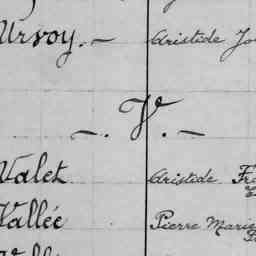 Urvoy. — Aristide
—. V. —
Valet Aristide
Vallée Pierre Marie